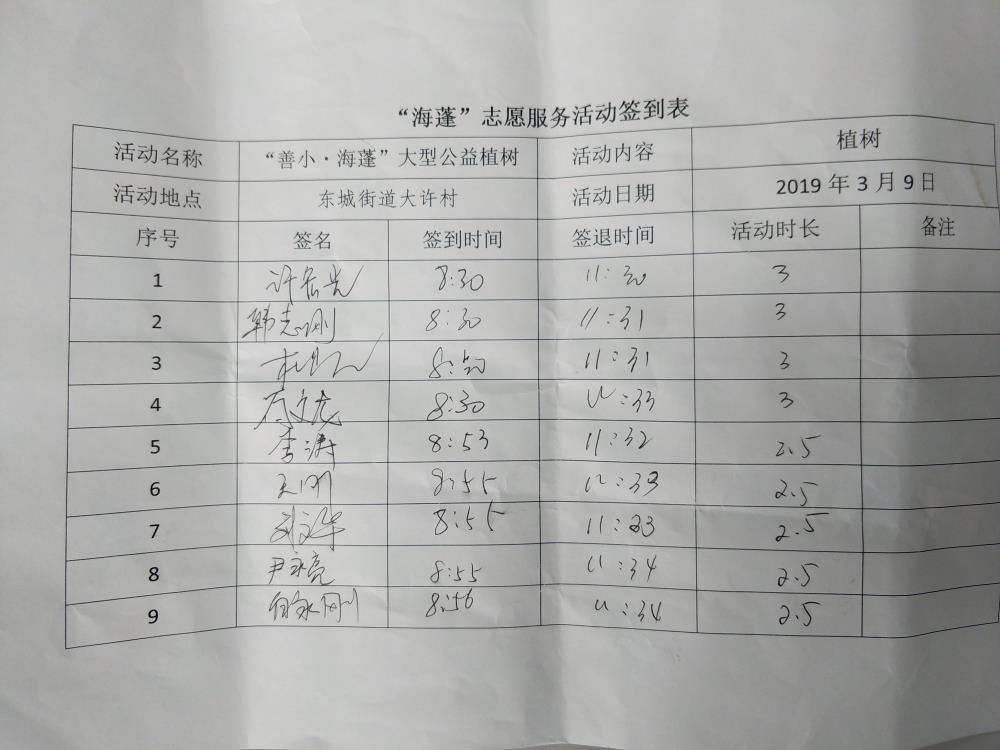 “海蓬”志愿服务活动签到表
活动名称 “善小·海蓬”大型公益植树 活动内容 植树
活动地点 东城街道大许村 活动日期 2019 年 3 月 9 日
序号 签名 签到时间 签退时间 活动时长 备注
1 8:30 11:30 3
2 韩志刚 8:30 11:31 3
3 11:31 3
4 8:30 11:33 3
5 李涛 8:53 11:32 2.5
6 王刚 8:55 11:33 2.5
7 刘文华 8:55 11:33 2.5
8 尹永亮 8:55 11:34 2.5
9 8:56 11:34 2.5